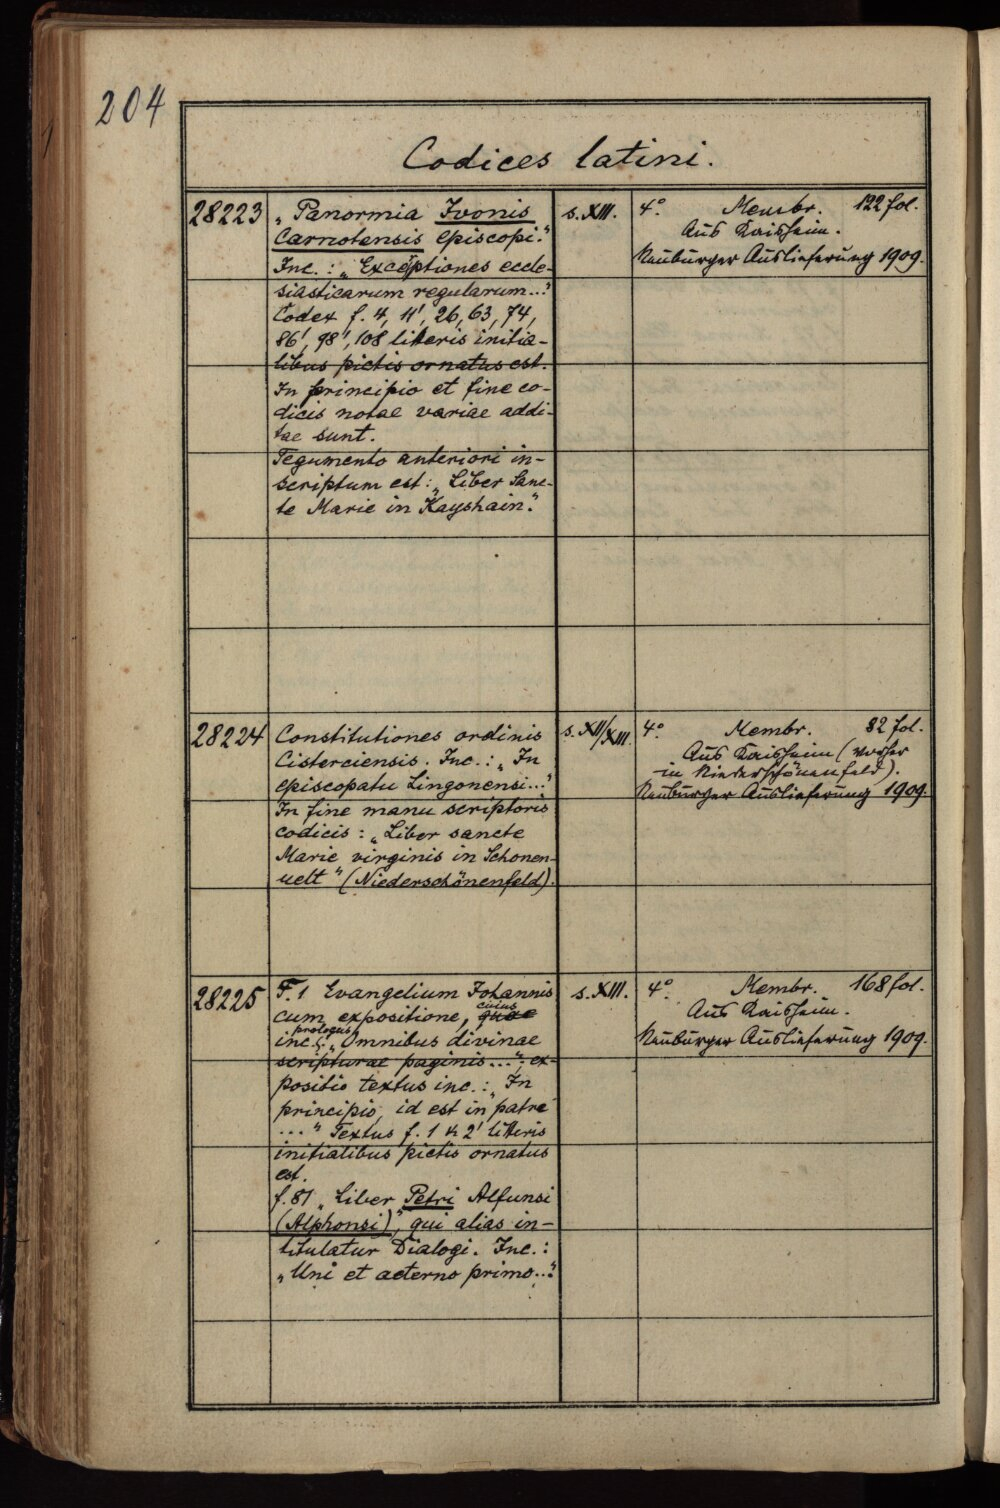 204
Codices latini.
28223
„Panormia Ivonis
Carnotensis episcopi."
Inc.: „Exceptiones eccle-
siasticarum regularum..."
Codex f. 4, 11', 26, 63, 74,
86', 98', 108 litteris initia-
libus pictis ornatus est.
In principio et fine co-
dicis notae variae addi-
tae sunt.
Tegumento anteriori in-
scriptum est: „Liber Sanc-
te Marie in Kayshain."
s. XIII.
4° Membr. 122 fol.
Aus Kaisheim.
Neuburger Auslieferung 1909.
28224
Constitutiones ordinis
Cisterciensis. Inc.: „In
episcopatu Lingonensi..."
In fine manu scriptoris
codicis: „Liber sancte
Marie virginis in Schonen-
uelt" (Niederschönenfeld).
s. XII/XIII.
4° Membr. 82 fol.
Aus Kaisheim (vorher
in Niederschönenfeld).
Neuburger Auslieferung 1909.
28225
F. 1 Evangelium Johannis
cum expositione, cuius quae
prologus inc.: „Omnibus divinae
scripturae paginis..."; ex-
positio textus inc.: „In
principio, id est in patre
..." Textus f. 1 & 2' litteris
initialibus pictis ornatus
est.
f. 81 „Liber Petri Alfunsi
(Alphonsi)", qui alias in-
titulatur Dialogi. Inc.:
„Uni et aeterno primo..."
s. XIII.
4° Membr. 168 fol.
Aus Kaisheim.
Neuburger Auslieferung 1909.